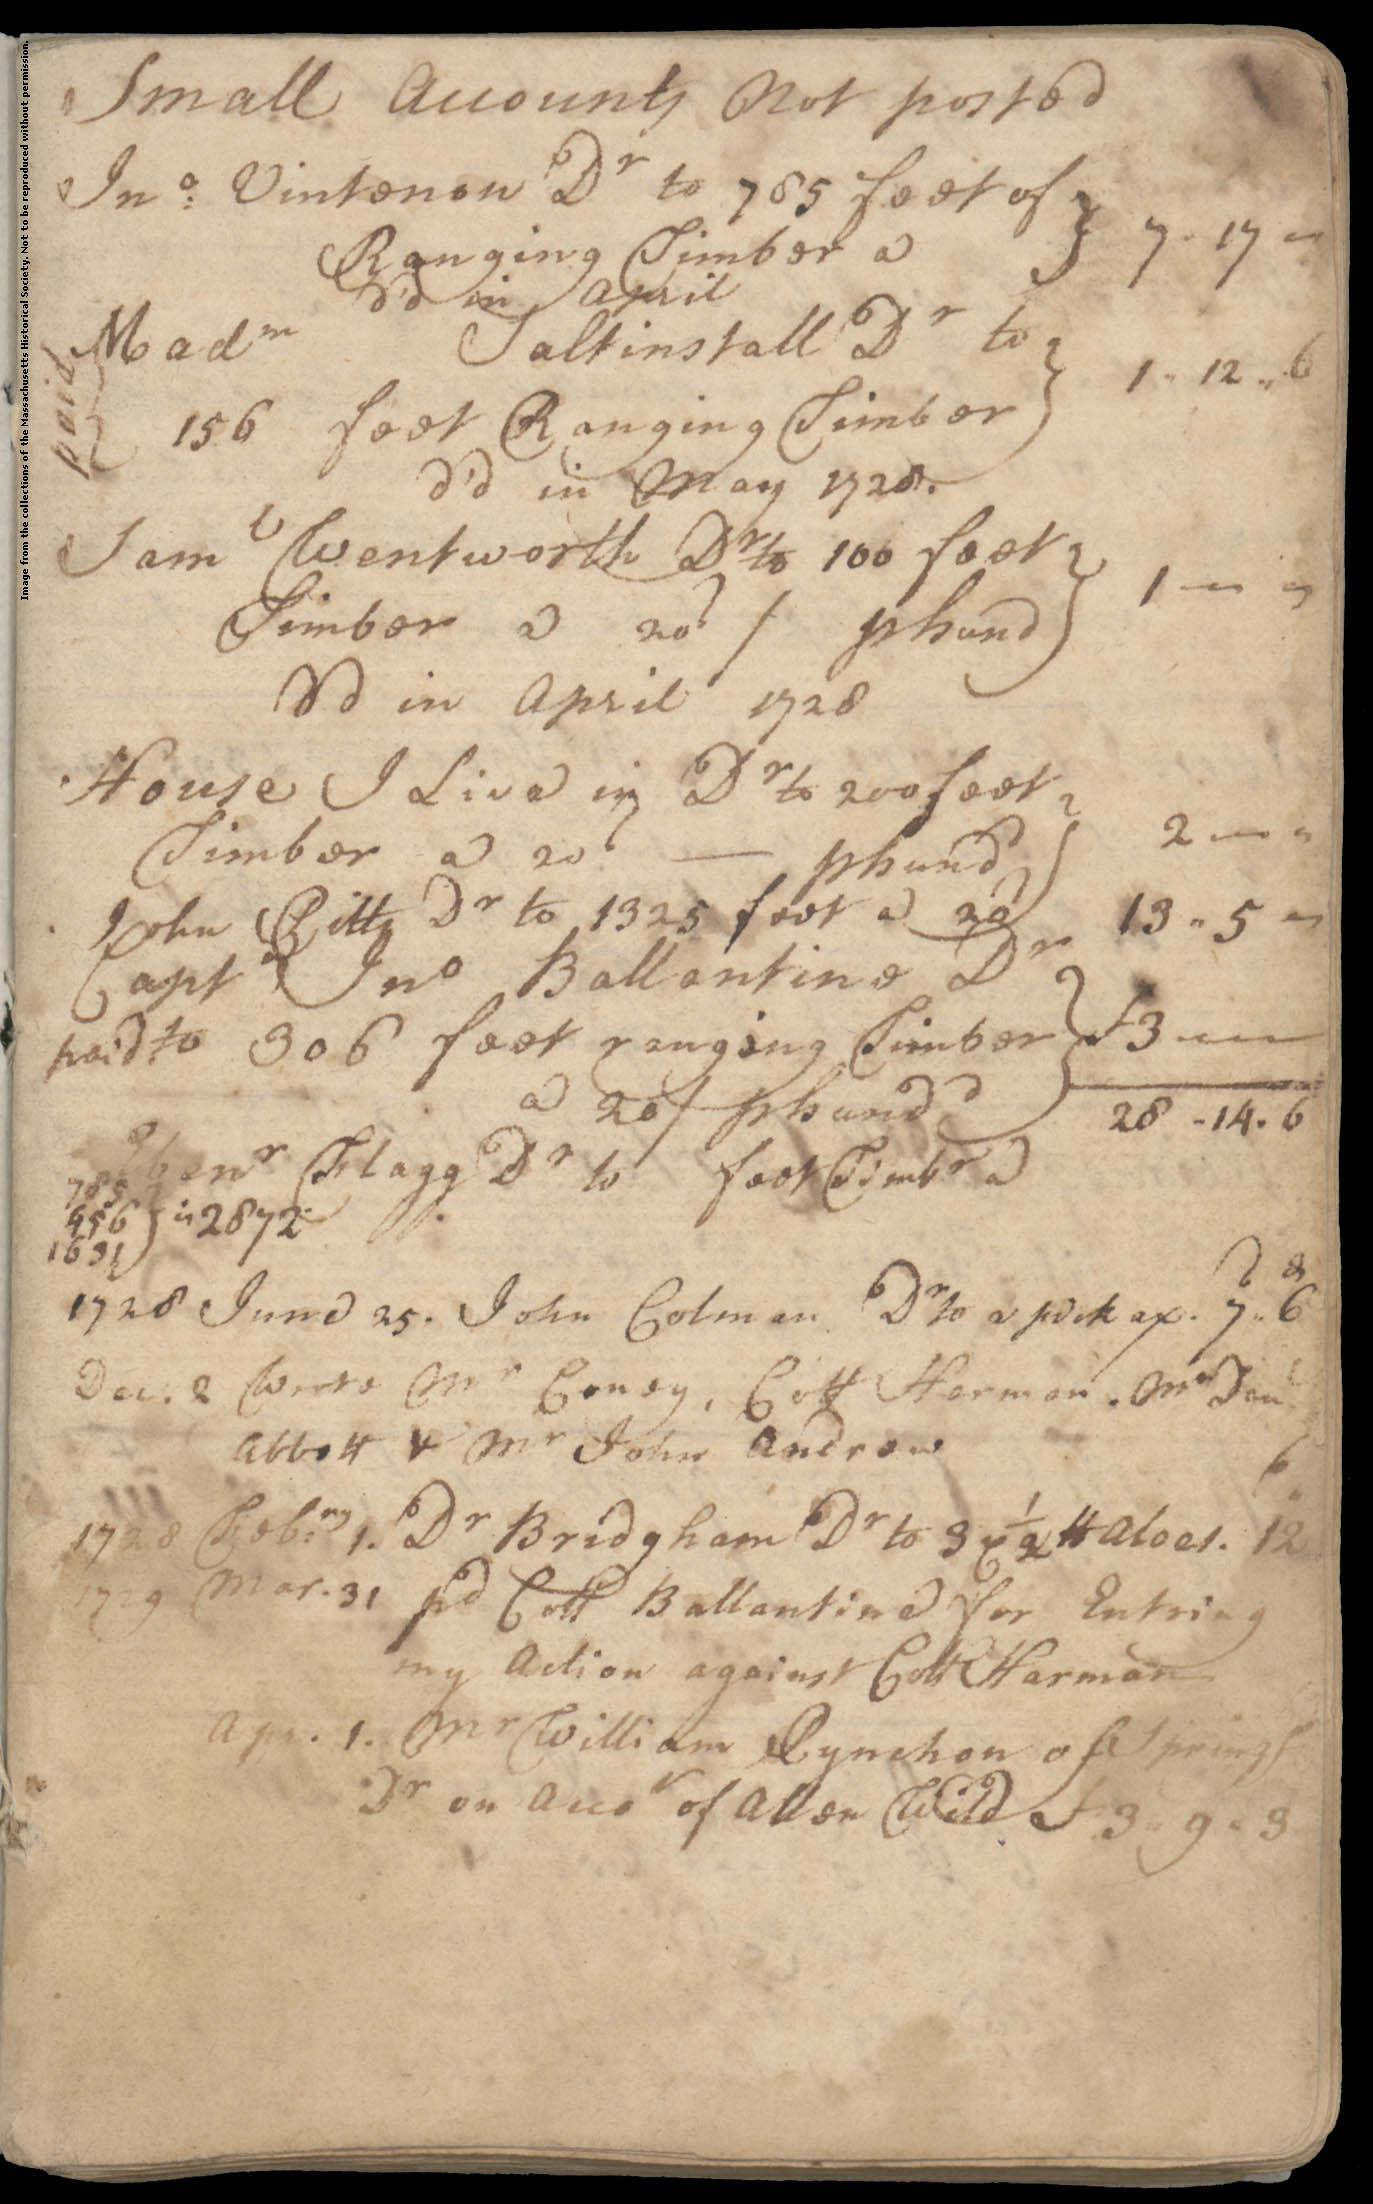 Image from the collections of the Massachusetts Historical Society. Not to be reproduced without permission.
Small Accounts Not posted
Jno: Vintenon Dr to 785 feet of
Ranging Timber a 7 - 17 -
D'd in April
Madm Saltinstall Dr to
paid 156 feet Ranging Timber 1 - 12 - 6
d'd in May 1728.
Saml Wentworth Dr to 100 feet 1 - -
Timber a 20s / phund
D'd in April 1728
House I Live in Dr to 200 feet
Timber a 20s — phund 2 - -
John Pitts Dr to 1325 feet a 20 13 - 5 -
Captn Jno Ballantine Dr
paid to 306 feet ranging Timber £3 - -
a 20/ phundd
28 - 14 - 6
Ebenr Flagg Dr to feet Timbr a
785
456 in 2872
1631
1728 June 25. John Colman Dr to a pickax. 7 - 6
Dec. 2 Wrote Mr Coney, Coll Harman. Mr Danl
Abbott & Mr John Andrew
1728 Febry 1. Dr Bridgham Dr to 3 & 1/2 ll Aloes. 12
1729 Mar. 31 pd Coll Ballantine for Entring
my Action against Coll Harman
Apr. 1. Mr William Pynchon of Springf
Dr on Accot of Allen Wild £3 - 9 - 3